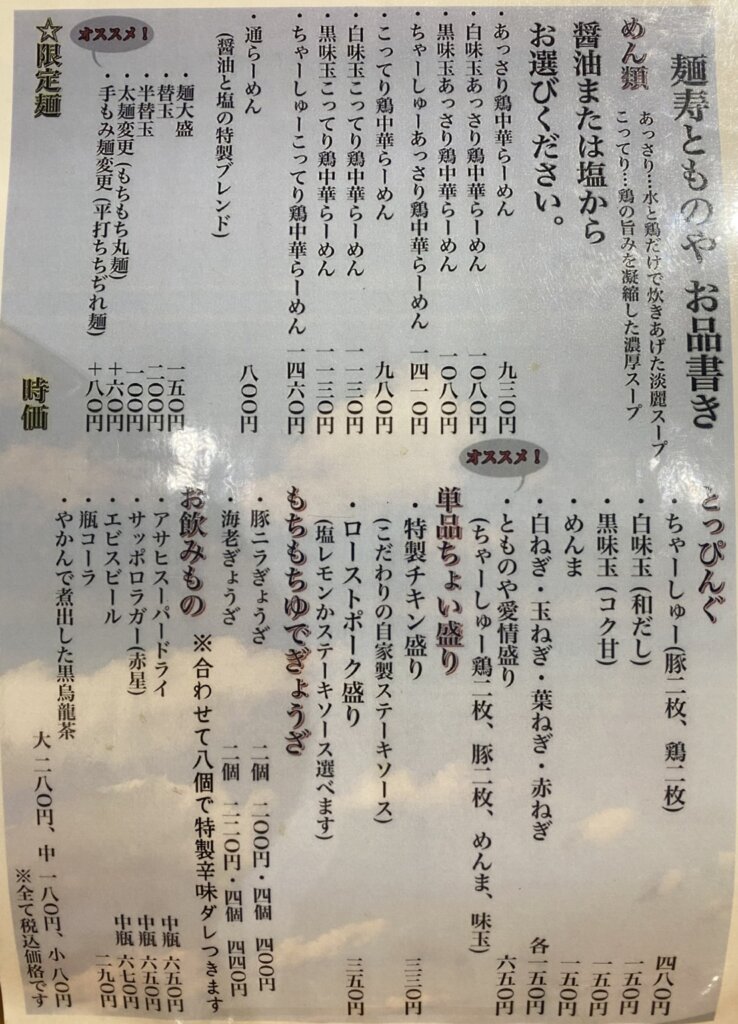 麺寿とものや お品書き
めん類
あっさり…水と鶏だけで炊きあげた淡麗スープ
こってり…鶏の旨みを凝縮した濃厚スープ
醤油または塩から
お選びください。
・あっさり鶏中華らーめん 九三〇円
・白味玉あっさり鶏中華らーめん 一〇八〇円
・黒味玉あっさり鶏中華らーめん 一〇八〇円
・ちゃーしゅーあっさり鶏中華らーめん 一四一〇円
・こってり鶏中華らーめん 九八〇円
・白味玉こってり鶏中華らーめん 一一三〇円
・黒味玉こってり鶏中華らーめん 一一三〇円
・ちゃーしゅーこってり鶏中華らーめん 一四六〇円
・通らーめん 八〇〇円
(醤油と塩の特製ブレンド)
・麺大盛 一五〇円
・替玉 二〇〇円
・半替玉 一〇〇円
・太麺変更(もちもち丸麺) +六〇円
オススメ!
・手もみ麺変更(平打ちちぢれ麺) +八〇円
☆限定麺 時価
とっぴんぐ
・ちゃーしゅー(豚二枚、鶏二枚) 四八〇円
・白味玉(和だし) 一五〇円
・黒味玉(コク甘) 一五〇円
・めんま 一五〇円
・白ねぎ・玉ねぎ・葉ねぎ・赤ねぎ 各一五〇円
オススメ!
・とものや愛情盛り 六五〇円
(ちゃーしゅー鶏二枚、豚二枚、めんま、味玉)
単品ちょい盛り
・特製チキン盛り 三三〇円
(こだわりの自家製ステーキソース)
・ローストポーク盛り 三五〇円
(塩レモンかステーキソース選べます)
もちもちゆでぎょうざ
・豚ニラぎょうざ 二個 二〇〇円・四個 四〇〇円
・海老ぎょうざ 二個 二二〇円・四個 四四〇円
※合わせて八個で特製辛味ダレつきます
お飲みもの
・アサヒスーパードライ 中瓶 六五〇円
・サッポロラガー(赤星) 中瓶 六五〇円
・エビスビール 中瓶 六七〇円
・瓶コーラ 二九〇円
・やかんで煮出した黒烏龍茶
大 二八〇円、中 一八〇円、小 八〇円
※全て税込価格です